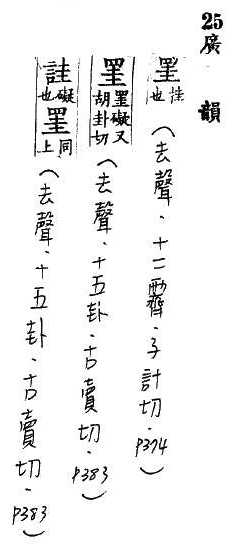 25廣韻
罣挂也（去聲．十二霽．子計切．P374）
罣罣礙又胡卦切（去聲．十五卦．古賣切．P383）
詿礙也罣上同（去聲．十五卦．古賣切．P383）